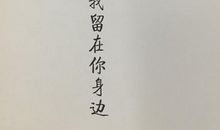 我留在你身边